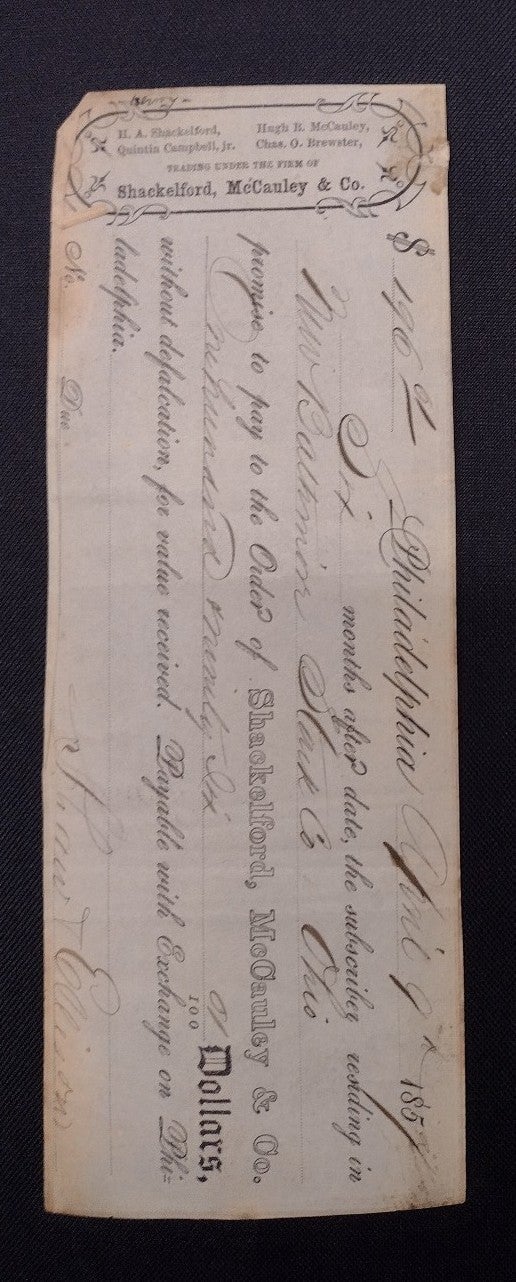 H. A. Shackelford, Hugh R. McCauley,
Quintin Campbell, jr. Chas. O. Brewster,
TRADING UNDER THE FIRM OF
Shackelford, McCauley & Co.
$ 196 01 Philadelphia April 9th 185
Six months after date, the subscriber residing in
New Baltimore Stark Co Ohio
promise to pay to the Order of Shackelford, McCauley & Co.
hundred ninety Six 01/100 Dollars,
without defalcation, for value received. Payable with Exchange on Phi=
ladelphia.
No. Due & Ellison